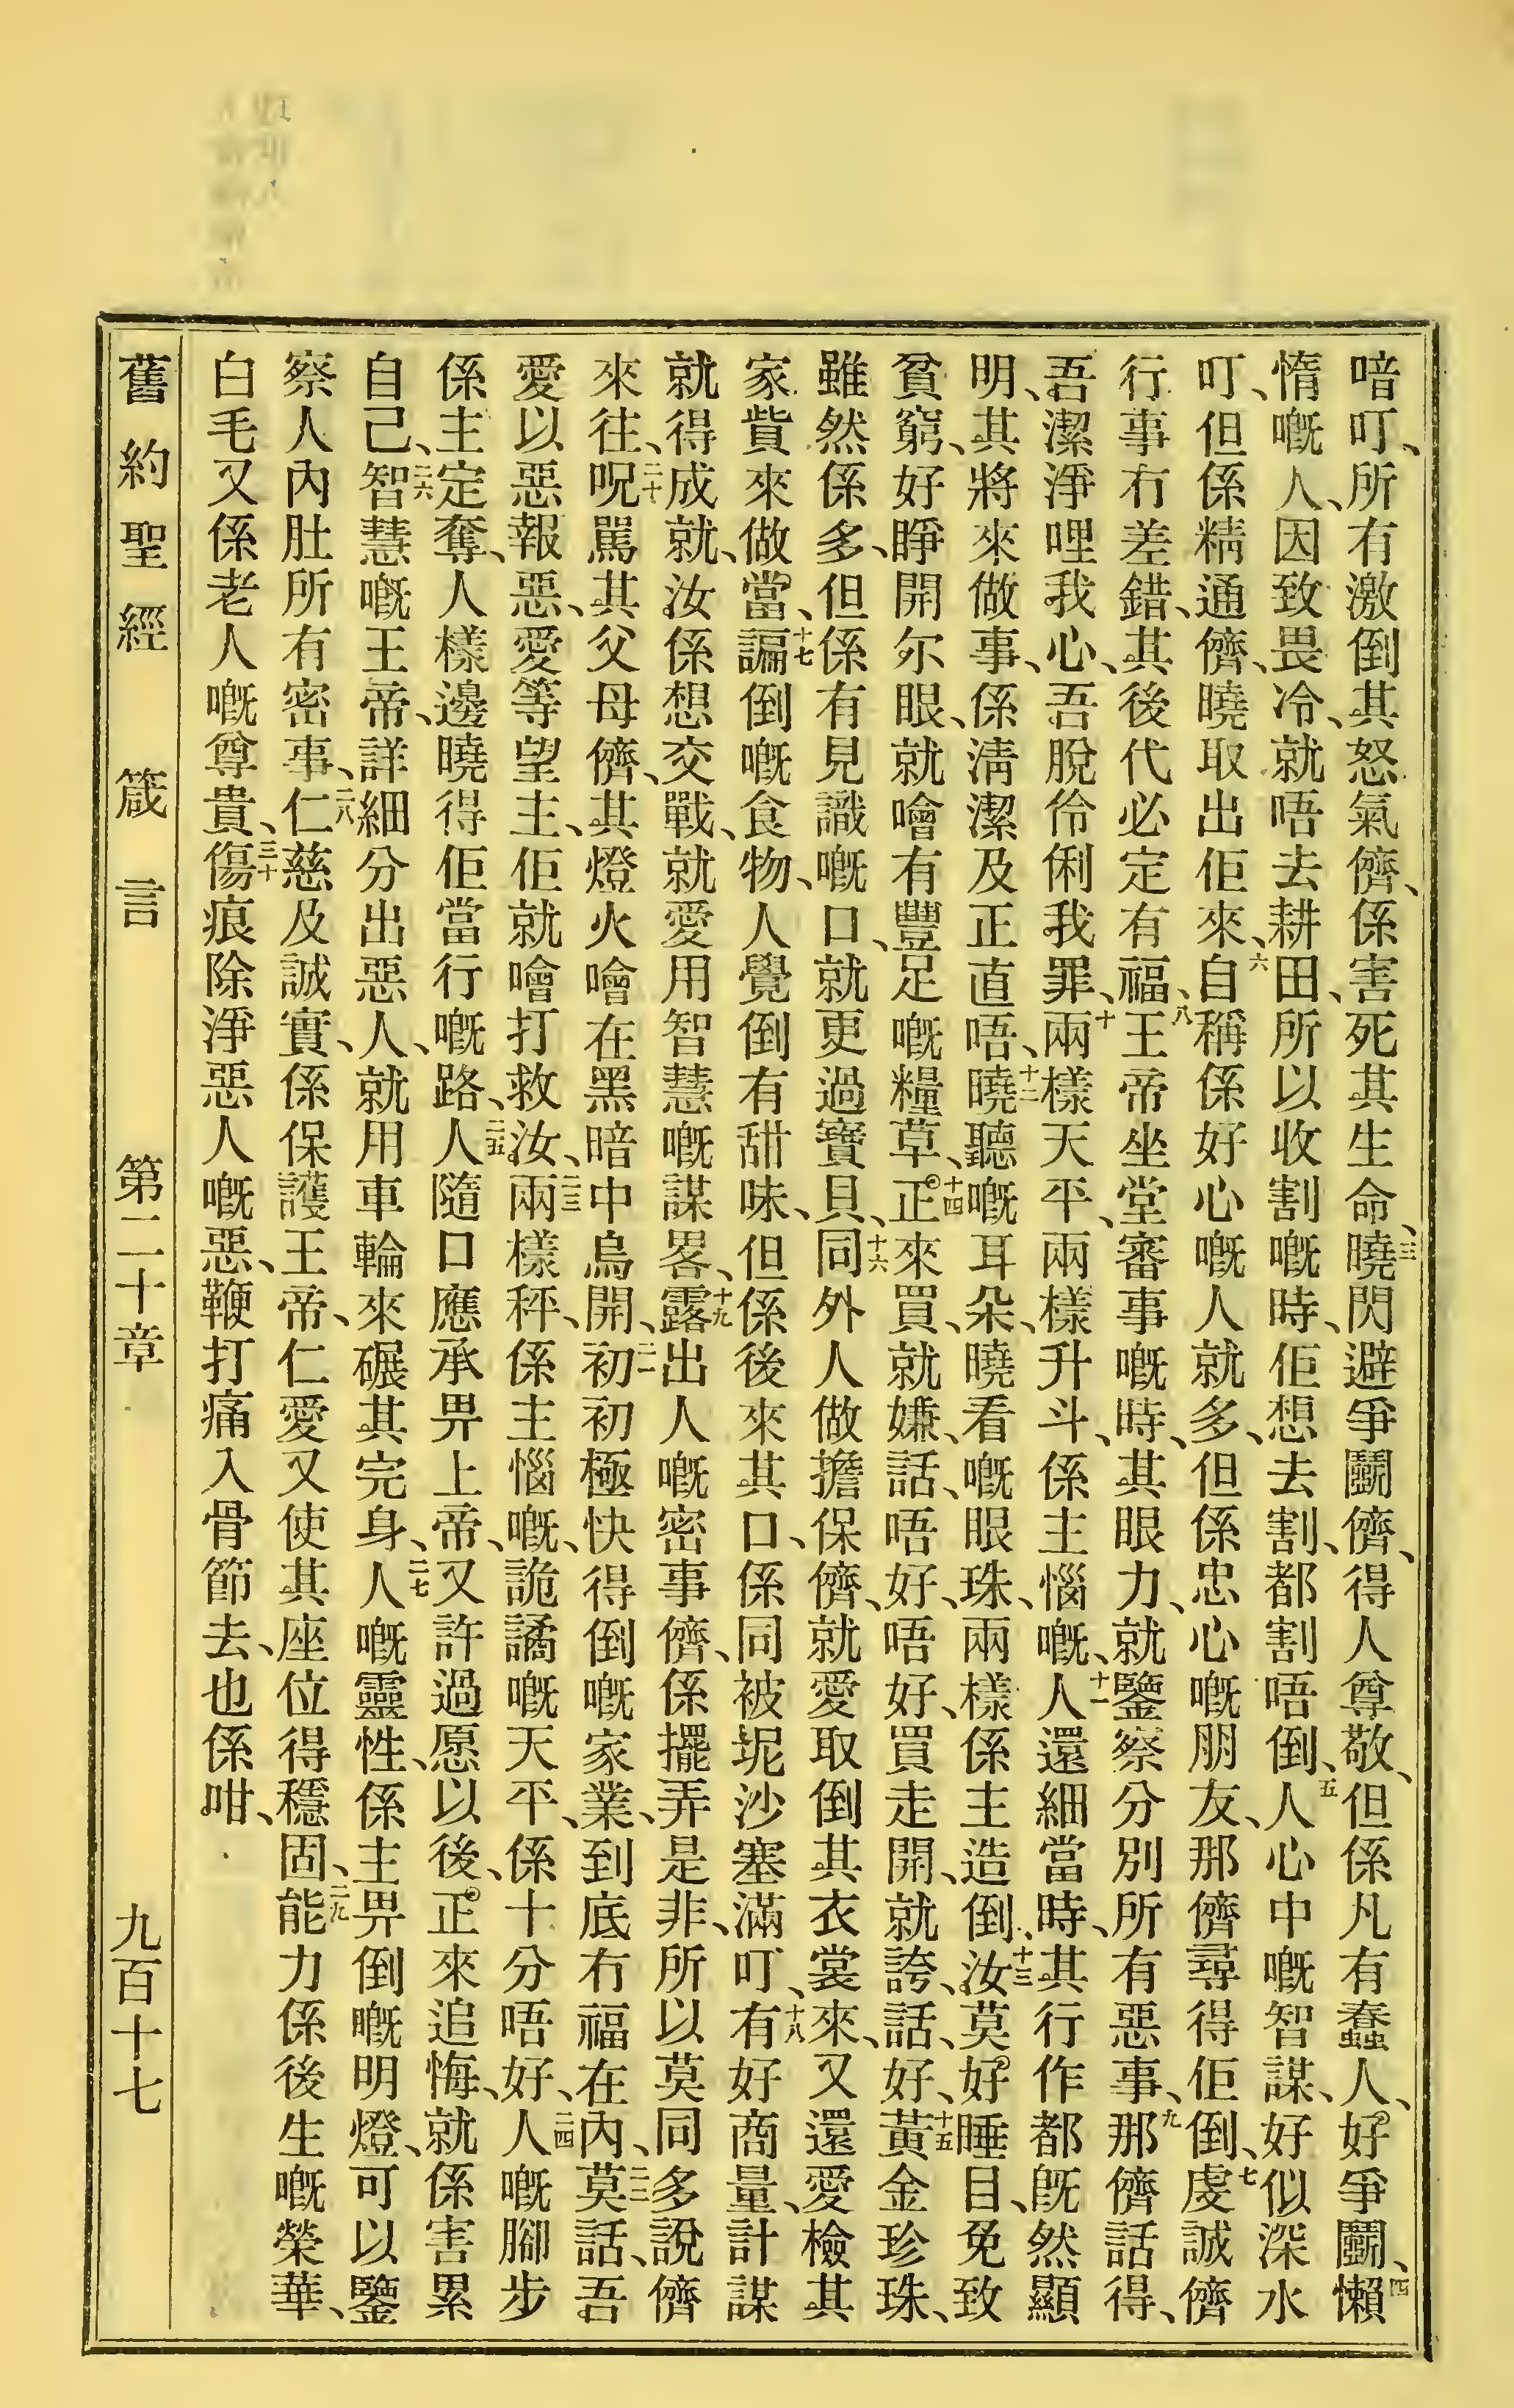 喑叮、所有激倒其怒氣儕、係害死其生命、三曉閃避爭鬭儕、得人尊敬、但係凡有蠢人、好爭鬭、四懶
惰嘅人、因致畏冷、就唔去耕田、所以收割嘅時、佢想去割、都割唔倒、五人心中嘅智謀、好似深水
叮、但係精通儕、曉取出佢來、六自稱係好心嘅人就多、但係忠心嘅朋友、那儕尋得佢倒、七虔誠儕
行事冇差錯、其後代必定有福、八王帝坐堂審事嘅時、其眼力、就鑒察分別所有惡事、九那儕話得、
吾潔淨哩我心、吾脫伶俐我罪、十兩樣天平、兩樣升斗、係主惱嘅、十一人還細當時、其行作都旣然顯
明、其將來做事、係淸潔及正直唔、十二曉聽嘅耳朶、曉看嘅眼珠、兩樣係主造倒、十三汝莫好睡目、免致
貧窮、好睜開尔眼、就噲有豐足嘅糧草、十四正來買、就嫌話、唔好、唔好、買走開、就誇話、好、十五黃金珍珠、
雖然係多、但係有見識嘅口、就更過寶貝、十六同外人做擔保儕、就愛取倒其衣裳來、又還愛檢其
家貲來做當、十七諞倒嘅食物、人覺倒有甜味、但係後來其口、係同被坭沙塞滿叮、十八有好商量、計謀
就得成就、汝係想交戰、就愛用智慧嘅謀畧、十九露出人嘅密事儕、係擺弄是非、所以莫同多說儕
來往、二十呪罵其父母儕、其燈火噲在黑暗中烏開、二一初初極快得倒嘅家業、到底冇福在內、二二莫話、吾
愛以惡報惡、愛等望主、佢就噲打救汝、二三兩樣秤、係主惱嘅、詭譎嘅天平、係十分唔好、二四人嘅腳步
係主定奪、人樣邊曉得佢當行嘅路、二五人隨口應承畀上帝、又許過愿以後、正來追悔、就係害累
自己、二六智慧嘅王帝、詳細分出惡人、就用車輪來碾其完身、二七人嘅靈性、係主畀倒嘅明燈、可以鑒
察人內肚所有密事、二八仁慈及誠實、係保護王帝、仁愛又使其座位得穩固、二九能力係後生嘅榮華、
白毛又係老人嘅尊貴、三十傷痕除淨惡人嘅惡、鞭打痛入骨節去、也係咁、
舊約聖經 箴言 第二十章 九百十七